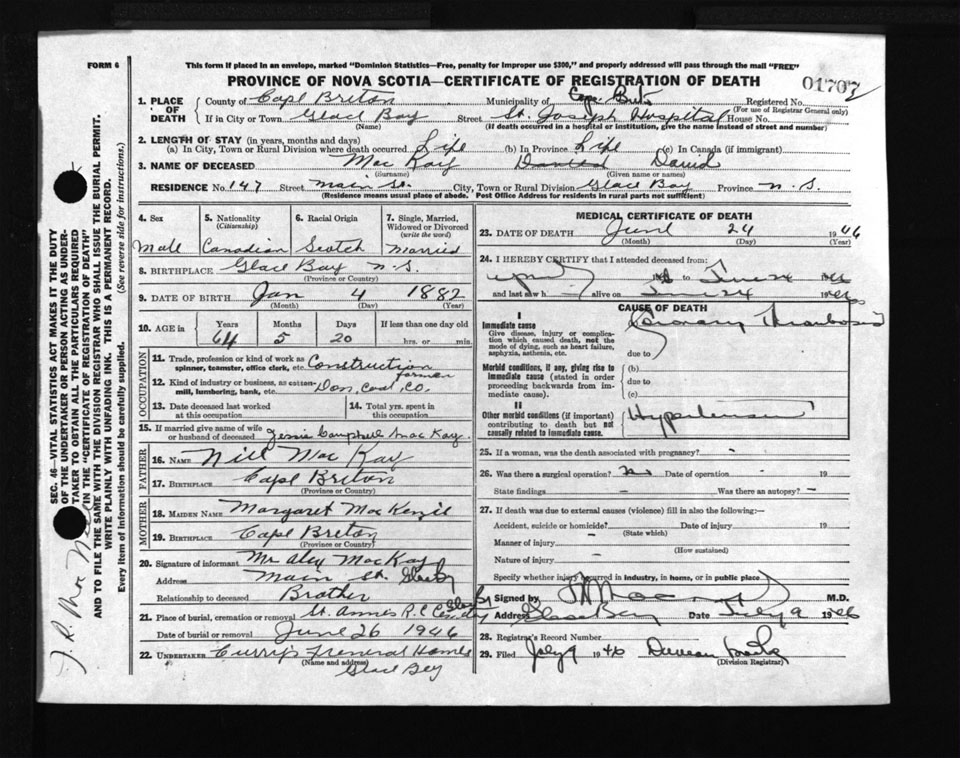 FORM 6
This form if placed in an envelope, marked "Dominion Statistics—Free, penalty for improper use $300," and properly addressed will pass through the mail "FREE"
PROVINCE OF NOVA SCOTIA—CERTIFICATE OF REGISTRATION OF DEATH
01707
1. PLACE OF DEATH
County of Cape Breton Municipality of Cape Breton Registered No.
(For use of Registrar General only)
If in City or Town Glace Bay Street St. Joseph Hospital House No.
(Name) (If death occurred in a hospital or institution, give the name instead of street and number)
2. LENGTH OF STAY (in years, months and days)
(a) In City, Town or Rural Division where death occurred Life (b) In Province Life (c) In Canada (if immigrant)
3. NAME OF DECEASED Mac Kay David
(Surname) (Given name or names)
RESIDENCE No. 147 Street Main St. City, Town or Rural Division Glace Bay Province N.S.
(Residence means usual place of abode. Post Office Address for residents in rural parts not sufficient)
4. Sex
Male
5. Nationality
(Citizenship)
Canadian
6. Racial Origin
Scotch
7. Single, Married, Widowed or Divorced
(write the word)
Married
8. BIRTHPLACE Glace Bay N.S.
(Province or Country)
9. DATE OF BIRTH Jan 4 1882
(Month) (Day) (Year)
10. AGE in
Years Months Days If less than one day old
64 5 20 hrs. or min.
OCCUPATION
11. Trade, profession or kind of work as spinner, teamster, office clerk, etc. Construction foreman
12. Kind of industry or business, as cotton-mill, lumbering, bank, etc. Dom. Coal Co.
13. Date deceased last worked at this occupation
14. Total yrs. spent in this occupation
15. If married give name of wife or husband of deceased Jessie Campbell MacKay.
FATHER
16. NAME Nill Mac Kay
17. BIRTHPLACE Cape Breton
(Province or Country)
MOTHER
18. MAIDEN NAME Margaret MacKenzie
19. BIRTHPLACE Cape Breton
(Province or Country)
20. Signature of informant Mr Alex MacKay
Address Main St. Glace Bay
Relationship to deceased Brother
21. Place of burial, cremation or removal St. Annes R.C Cemetery Glace Bay
Date of burial or removal June 26 1946
22. UNDERTAKER Curry's Funeral Home
(Name and address)
Glace Bay
MEDICAL CERTIFICATE OF DEATH
23. DATE OF DEATH June 24 1946
(Month) (Day) (Year)
24. I HEREBY CERTIFY that I attended deceased from:
to June 24 1946
and last saw h alive on June 24 1946
CAUSE OF DEATH
I
Immediate cause
Give disease, injury or complication which caused death, not the mode of dying, such as heart failure, asphyxia, asthenia, etc.
Coronary Thrombosis
due to
Morbid conditions, if any, giving rise to immediate cause (stated in order proceeding backwards from immediate cause).
(b)
due to
(c)
II
Other morbid conditions (if important) contributing to death but not causally related to immediate cause.
Hypertension
25. If a woman, was the death associated with pregnancy? -
26. Was there a surgical operation? no Date of operation - 19
State findings - Was there an autopsy? -
27. If death was due to external causes (violence) fill in also the following:—
Accident, suicide or homicide? Date of injury 19
(State which)
Manner of injury -
(How sustained)
Nature of injury -
Specify whether injury occurred in industry, in home, or in public place
Signed by M.D.
Address Glace Bay Date July 9 1946
28. Registrar's Record Number
29. Filed July 9 1946 Duncan
(Division Registrar)
SEC. 46—VITAL STATISTICS ACT MAKES IT THE DUTY OF THE UNDERTAKER OR PERSON ACTING AS UNDERTAKER TO OBTAIN ALL THE PARTICULARS REQUIRED IN THE "CERTIFICATE OF REGISTRATION OF DEATH" AND TO FILE THE SAME WITH THE DIVISION REGISTRAR WHO SHALL ISSUE THE BURIAL PERMIT.
WRITE PLAINLY WITH UNFADING INK. THIS IS A PERMANENT RECORD.
Every item of information should be carefully supplied. (See reverse side for instructions.)